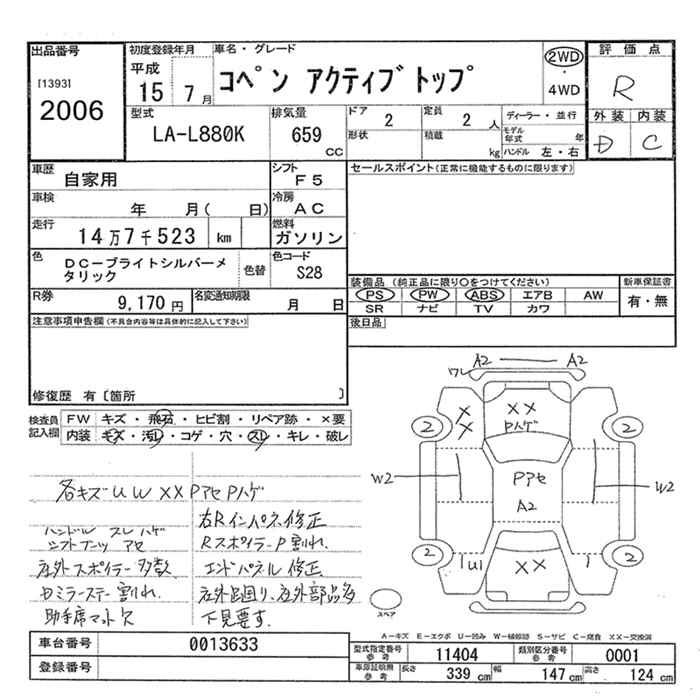 出品番号 初度登録年月 車名・グレード 評価点
[1393] 平成 コペン アクティブトップ 2WD R
2006 15 7月 ・ 4WD
型式 排気量 ドア 2 定員 2人 ディーラー・並行 外装 内装
LA-L880K 659 cc 形状 積載 kg モデル年式 年 D C
ハンドル 左・右
車歴 自家用 シフト F5 セールスポイント(正常に機能するものに限ります)
車検 年 月( 日) 冷房 AC
走行 14万7千523 km 燃料 ガソリン
色 DC-ブライトシルバーメタリック 色替 色コード S28
装備品(純正品に限り○をつけてください) 新車保証書
R券 9,170円 名変通知期限 月 日 PS PW ABS エアB AW 有・無
SR ナビ TV カワ
注意事項申告欄(不具合内容等は具体的に記入して下さい) 後日品
修復歴 有〔箇所 〕
検査員記入欄 FW キズ・飛石・ヒビ割・リペア跡・×要
内装 キズ・汚レ・コゲ・穴・スレ・キレ・破レ
各キズUW XX Pアセ Pハゲ
ハンドル スレハゲ
シフトブーツ アセ
左外スポイラー多数
助手席マット欠
右Rインパネ修正
Rスポイラー P 割れ
エンドパネル修正
下見要す
A2 A2
ワレ
XX
XX
Pハゲ
2 2
W2 Pアセ W2
A2
2 2
XX
スペア
A-キズ E-エクボ U-凹み W-補修跡 S-サビ C-腐食 XX-交換済
車台番号 0013633 型式指定番号 参考 11404 類別区分番号 参考 0001
登録番号 車庫証明用 参考 長さ 339cm 幅 147cm 高さ 124cm